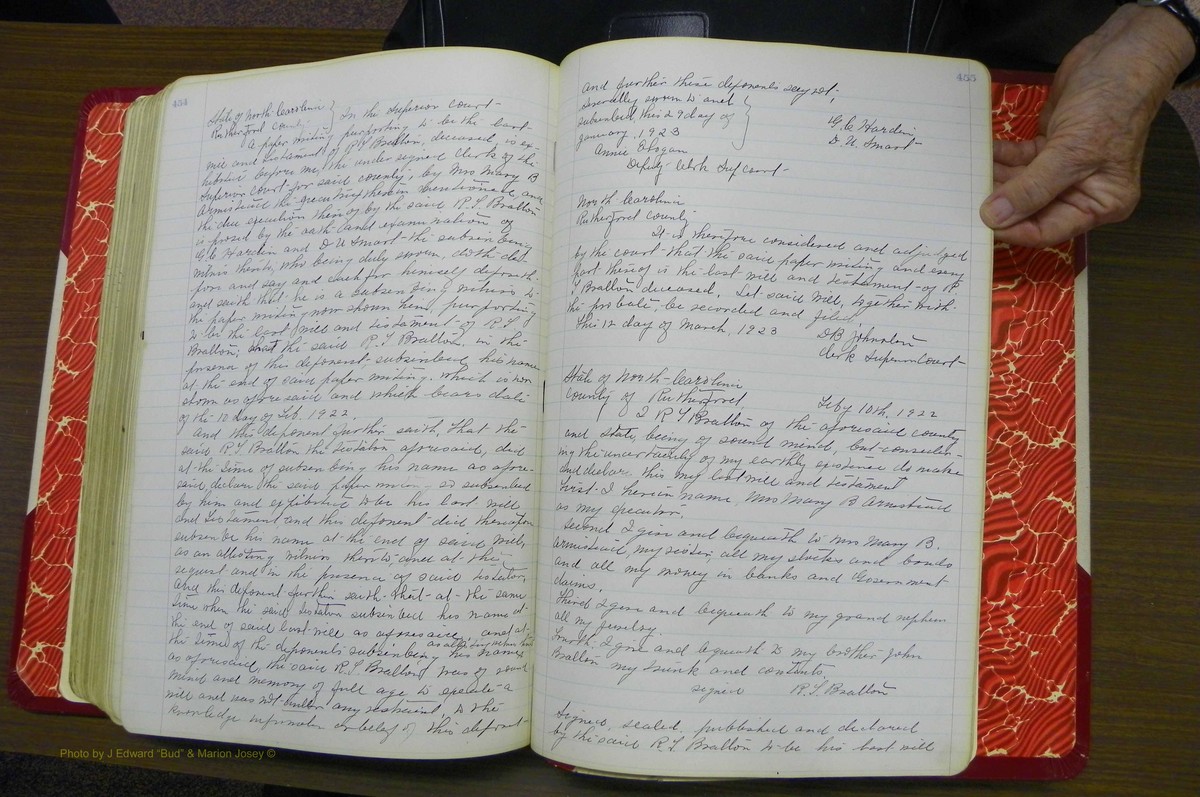 454
State of North Carolina
Rutherford County
In the Superior Court
A paper writing purporting to be the last
will and testament of R Y Bratton, deceased is ex-
hibited before me, the undersigned clerk of the
Superior Court for said county, by Mrs Mary B
Armistead the executrix therein mentioned, and
the due execution thereof by the said R. Y Bratton
is proved by the oath and examination of
G C Hardin and D U Smart the subscribing
witness thereto, who being duly sworn, doth de-
pose and say and each for himself deposeth
and saith that he is a subscribing witness to
the paper writing now shown him, purporting
to be the last will and testament of R. Y.
Bratton, that the said R. Y Bratton, in the
presence of this deponent subscribed his name
at the end of said paper writing, which is now
shown as aforesaid and which bears date
of the 10 day of Feb. 1922.
and this deponent further saith, that the
said R. Y. Bratton the testator aforesaid, did
at the time of subscribing his name as afore-
said, declare the said paper writing so subscribed
by him and exhibited to be his last will
and testament and this deponent did thereupon
subscribe his name at the end of said will,
as an attesting witness thereto and at the
request and in the presence of said testator,
And this deponent further saith that at the same
time when the said testator subscribed his name at
the end of said last will as aforesaid, and at
the time of the deponents subscribing his name
as aforesaid, the said R. Y. Bratton was of sound
mind and memory of full age to execute a
will and was not under any restraint to the
knowledge information or belief of this deponent
455
and further these deponents say not,
Severally sworn to and
subscribed this 29 day of
January, 1923
G. C Hardin
D. U. Smart
Annie Hogan
Deputy Clerk Sup Court
North Carolina
Rutherford County
It is therefore considered and adjudged
by the court that the said paper writing and every
part thereof is the last will and testament of R
Y Bratton deceased. Let said will, together with
the probate, be recorded and filed
This 12 day of March, 1923
Clerk Superior Court
State of North Carolina
County of Rutherford
Feby 10th, 1922
I R Y Bratton of the aforesaid county
and state, being of sound mind, but consider-
ing the uncertainty of my earthly existence do make
and declare this my last will and testament
First I herein name Mrs Mary B Armistead
as my executor.
Second I give and bequeath to Mrs Mary B.
Armistead, my sister, all my stocks and bonds
and all my money in banks and Government
claims.
Third I give and bequeath to my grand nephew
all my jewelry.
Fourth, I give and bequeath to my brother John
Bratton my trunk and contents.
signed R. Y Bratton
Signed, sealed, published and declared
by the said R. Y Bratton to be his last will
Photo by J Edward "Bud" & Marion Josey ©